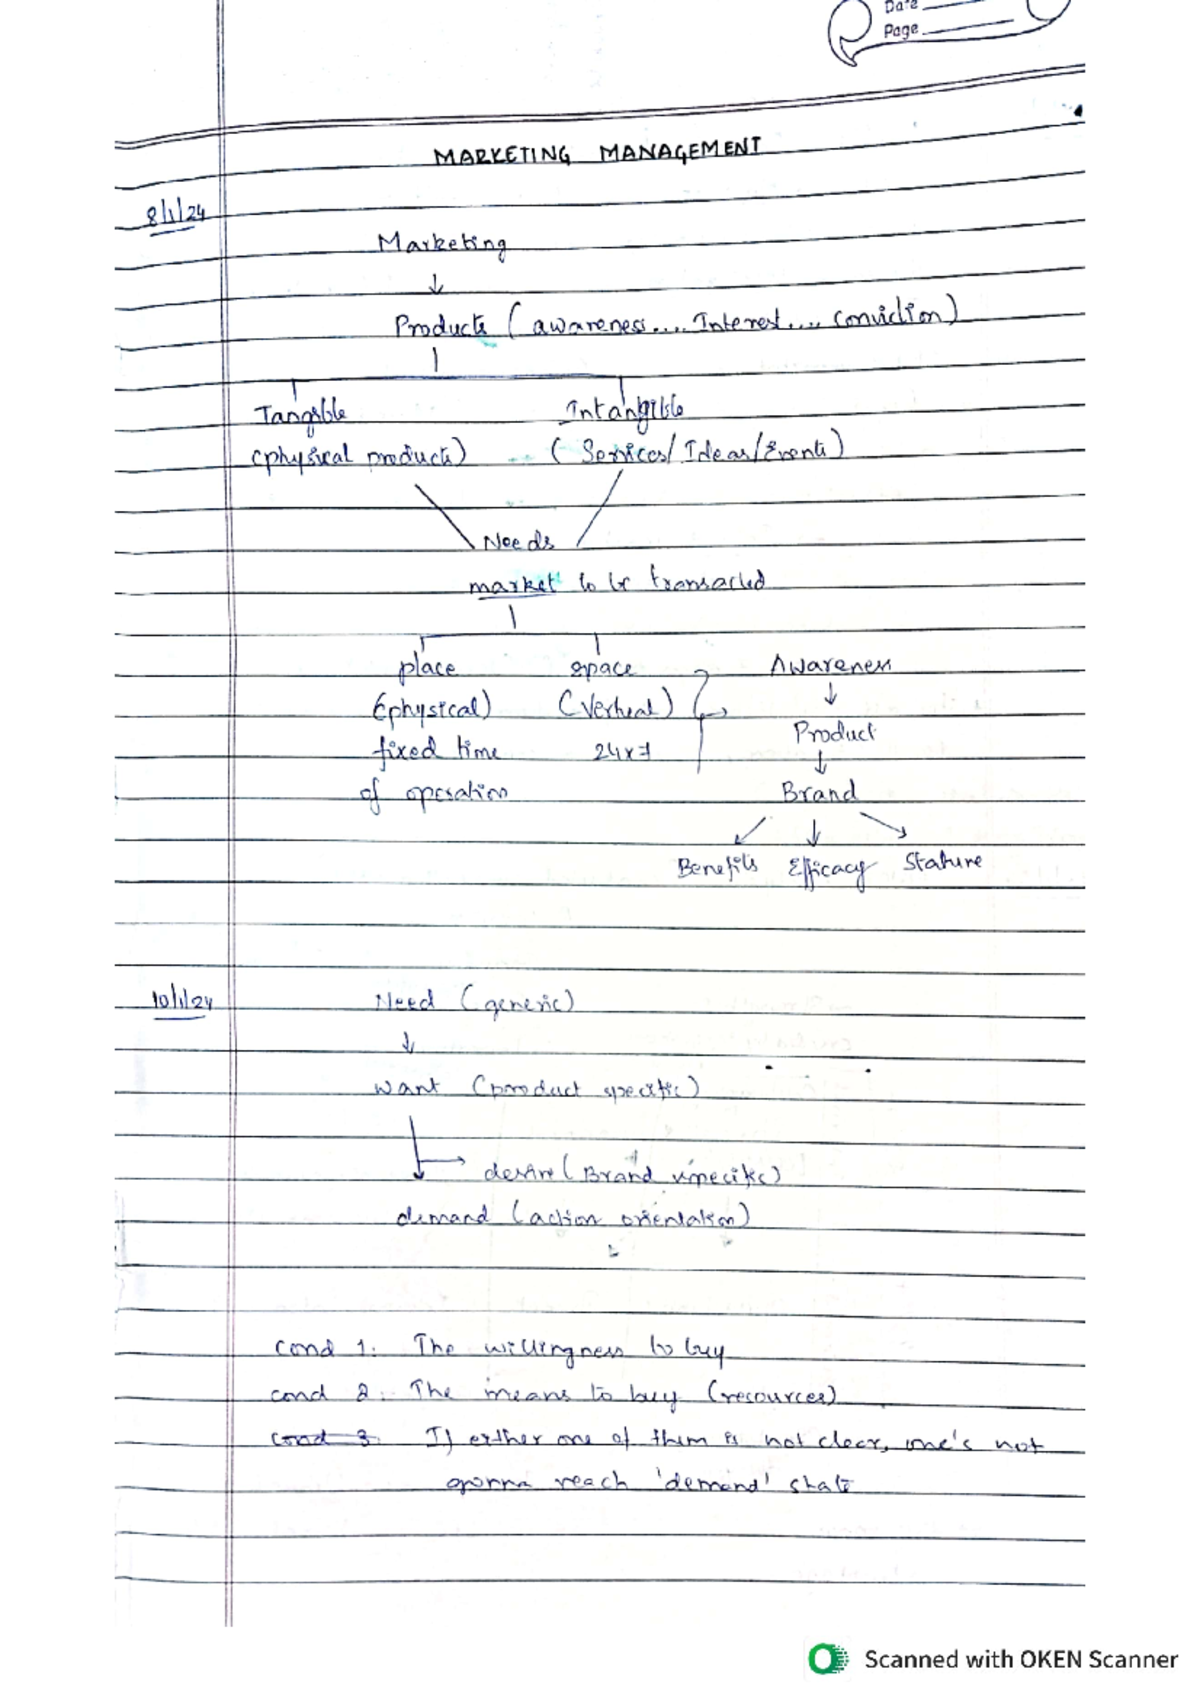 Date
Page
MARKETING MANAGEMENT
8/1/24
Marketing
↓
Products (awareness.... Interest.... conviction)
Tangible Intangible
(physical products) (Services/Ideas/Events)
Needs
market to be transacted
place space Awareness
(physical) (Vertual) ↓
Product
fixed time 24x7 ↓
of operation Brand
Benefits Efficacy Stature
10/1/24 Need (generic)
↓
want (product specific)
desire (Brand specific)
demand (action orientation)
cond 1. The willingness to buy
cond 2. The means to buy (resources)
cond 3. If either one of them is not clear, one's not
gonna reach 'demand' state
Scanned with OKEN Scanner